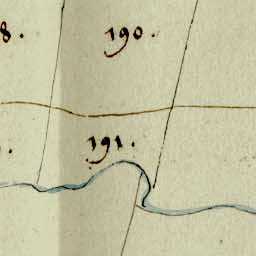 8.
190.
191.